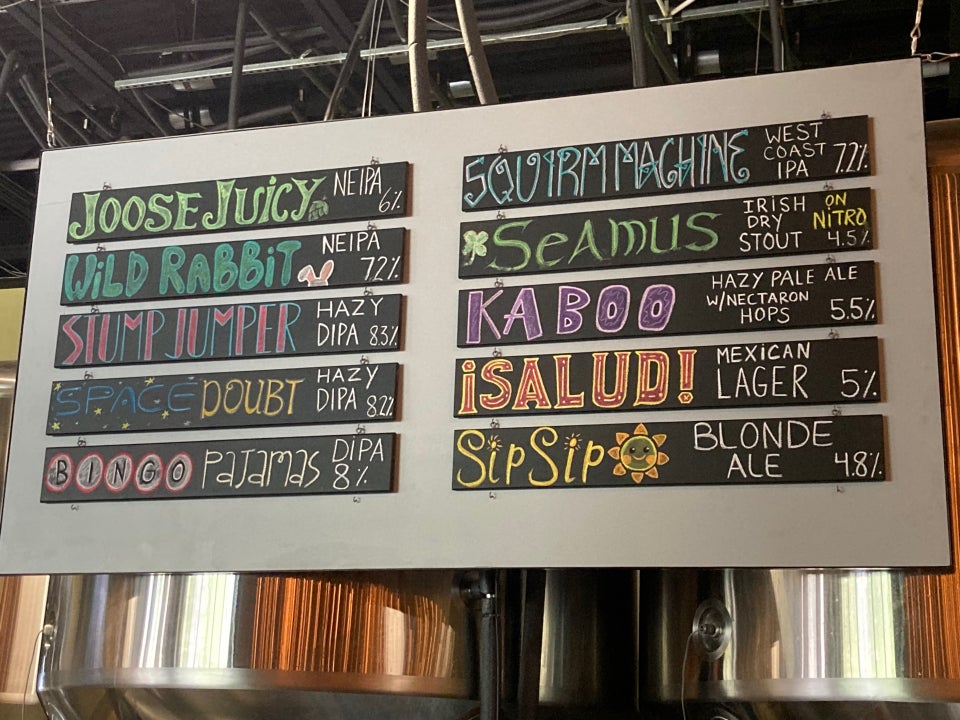 JOOSE JUICY NEIPA
6%
WiLD RABBiT NEIPA
7.2%
STUMP JUMPER HAZY
DIPA 8.3%
SPACE DOUBT HAZY
DIPA 8.2%
BINGO PaJamas DiPA
8%
SQUIRM MACHINE WEST
COAST
IPA 7.2%
SeAMUS IRISH
DRY
STOUT
ON
NITRO
4.5%
KABOO HAZY PALE ALE
W/NECTARON
HOPS 5.5%
¡SALUD! MEXICAN
LAGER 5%
SipSip BLONDE
ALE 4.8%